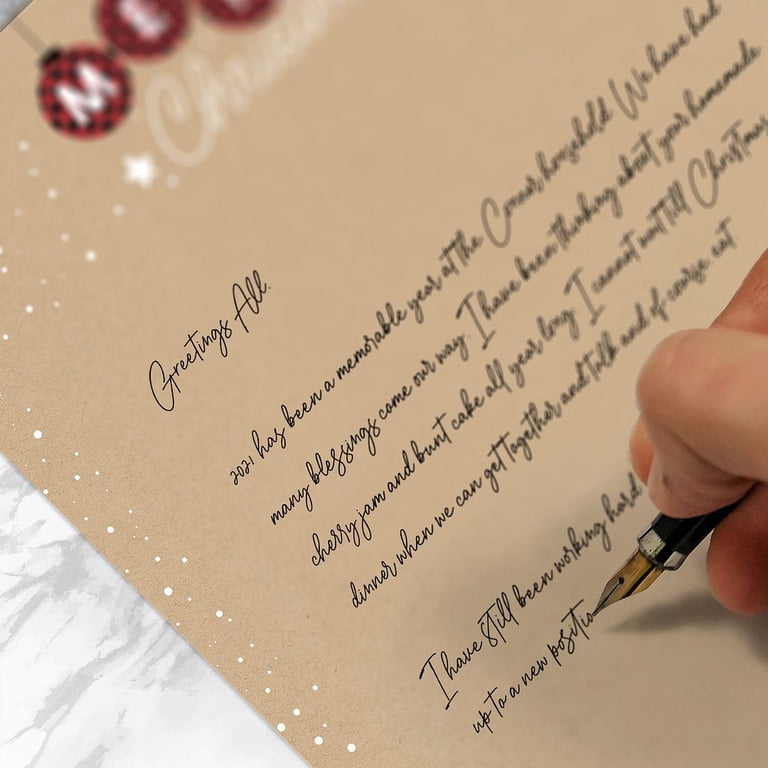 MER
Christmas
Greetings All.
2021 has been a memorable year at the Conner household We have had
many blessings come our way. I have been thinking about your homemade
cherry jam and bunt cake all year long. I cannot wait till Christmas
dinner when we can get together and talk and of course eat
I have still been working hard
up to a new positio